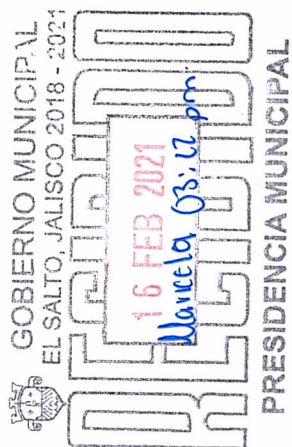 GOBIERNO MUNICIPAL
EL SALTO, JALISCO 2018 - 2021
RECIBIDO
16 FEB 2021
Marcela 03:22 pm
PRESIDENCIA MUNICIPAL